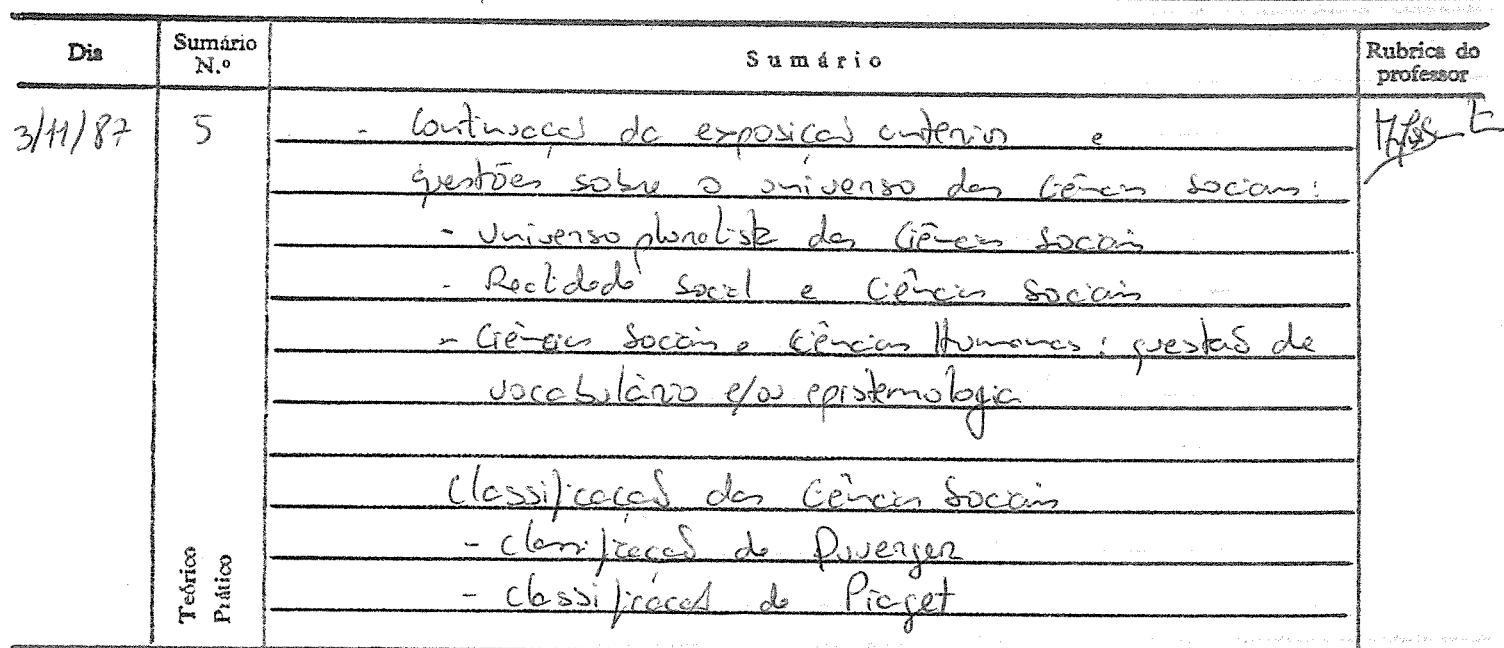 Dia
Sumário N.º
Sumário
Rubrica do professor
3/11/87
5
- Continuação da exposição anterior e
questões sobre o universo das Ciências Sociais:
- Universo pluralista das Ciências Sociais
- Realidade Social e Ciências Sociais
- Ciências Sociais e Ciências Humanas: questão de
vocabulário e/ou epistemologia
Classificação das Ciências Sociais
- classificação de Duverger
- classificação de Piaget
Teórico
Prático